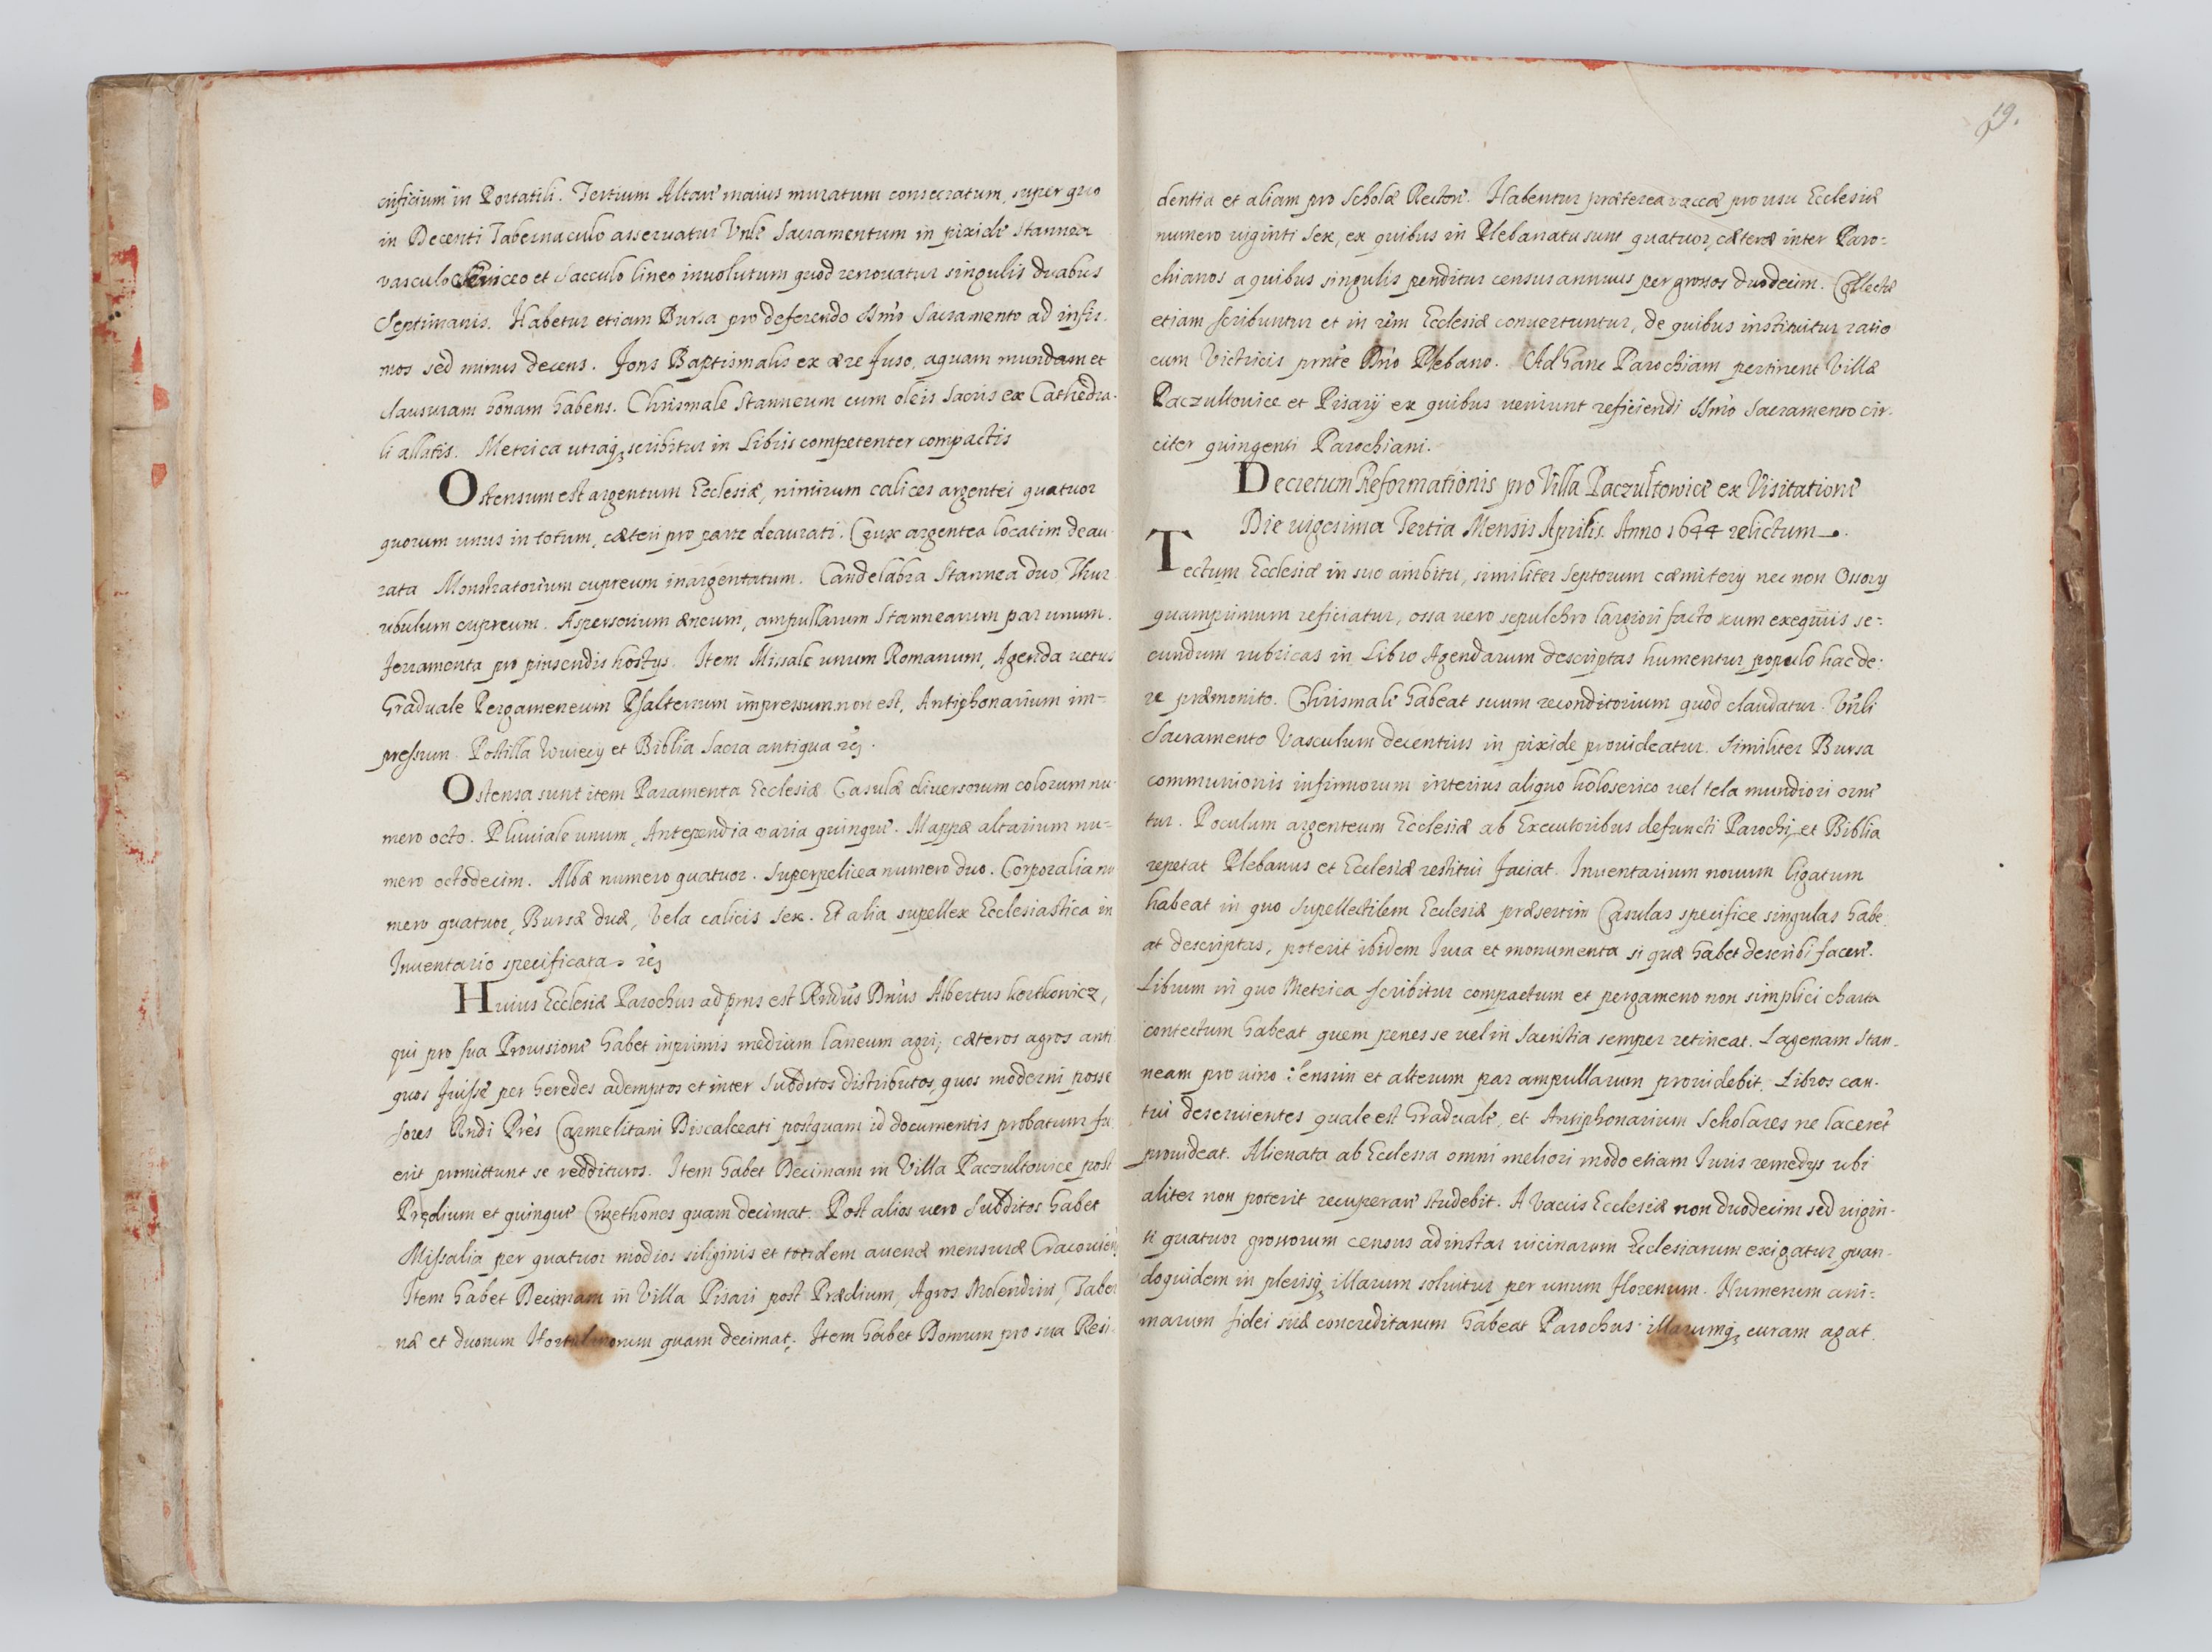 crificium in Portatili. Tertium Altare maius muratum consecratum, super quo
in Decenti Tabernaculo asseruatur Vnle Sacramentum in pixide stannea
vasculo et sacculo lineo inuolutum quod renouatur singulis duabus
Septimanis. Habetur etiam Bursa pro deferendo SSmo Sacramento ad infir-
mos sed minus decens. Fons Baptismalis ex ære fuso, aquam mundam et
clausuram bonam habens. Chrismale stanneum cum oleis sacris ex Cathedra-
li allatis. Metrica utraq3 scribitur in Libris competenter compactis
Ostensum est argentum Ecclesiæ, nimirum calices argentei quatuor
quorum unus in totum, cæteri pro parte deaurati. Crux argentea locatim deau-
rata Monstratorium cupreum inargentatum. Candelabra Stannea duo, Thur
ribulum cupreum. Aspersorium æneum, ampullarum Stannearum par unum.
ferramenta pro pinsendis hostys. Item Missale unum Romanum, Agenda uetus
Graduale Pergameneum Psalterium impressum non est, Antiphonarium im=
pressum. Postilla Wuiecy et Biblia Sacra antiqua
Ostensa sunt item Paramenta Ecclesiæ Casulæ diuersorum colorum nu-
mero octo. Pluuiale unum, Antependia varia quinque. Mappæ altarium nu=
mero octodecim. Albæ numero quatuor. Superpelicea numero duo. Corporalia nu
mero quatuor, Bursæ duæ, Vela calicis sex. Et alia supellex Ecclesiastica in
Inuentario specificata
Huius Ecclesiæ Parochus ad prns est Rndus Dnus Albertus kortkowicz,
qui pro sua Prouisione habet inprimis medium laneum agri; cæteros agros anti
quos fuisse per heredes ademptos et inter Subditos distributos, quos moderni posse
sores Rndi Pres Carmelitani Discalceati postquam id documentis probatum fu
erit promittunt se reddituros. Item habet Decimam in Villa Paczultowice post
Prędium et quinque Cmethones quam decimat. Post alios uero Subditos habet
Missalia per quatuor modios siliginis et totidem auenæ mensuræ Cracouien
Item habet Decimam in Villa Pisari post Prædium, Agros Molendini, Taber
næ et duorum Hortulanorum quam decimat; Item habet Domum pro sua Resi-
19.
dentia et aliam pro Scholæ Rectore. Habentur præterea vaccæ pro usu Ecclesiæ
numero uiginti sex, ex quibus in Plebanatu sunt quatuor, cæteræ inter Paro=
chianos a quibus singulis penditur census annuus per grossos duodecim. Collectæ
etiam scribuntur et in rem Ecclesiæ conuertuntur, de quibus instituitur ratio
cum Victricis prnte Dno Plebano. Ad hanc Parochiam pertinent Villæ
Paczultowice et Pisary ex quibus ueniunt reficiendi SSmo Sacramento cir-
citer quingenti Parochiani.
Decretum Reformationis pro Villa Paczultowice ex Visitatione
Die uigesima Tertia Mensis Aprilis. Anno 1644 relictum
Tectum Ecclesiæ in suo ambitu, similiter Septorum cæmitery nec non Ossory
quamprimum reficiatur, ossa uero sepulchro largiori facto cum exequiis se=
cundum rubricas in Libro Agendarum descriptas humentur populo hac de
re præmonito. Chrismale habeat suum reconditorium quod claudatur. Vnli
Sacramento Vasculum decentius in pixide prouideatur. Similiter Bursa
communionis infirmorum interius aliquo holoserico uel tela mundiori orne
tur. Poculum argenteum Ecclesiæ ab Executoribus defuncti Parochi, et Biblia
repetat Plebanus et Ecclesiæ restitui faciat. Inuentarium nouum ligatum
habeat in quo Supellectilem Ecclesiæ præsertim Casulas specifice singulas habe
at descriptas, poterit ibidem Iura et monumenta si quæ habet describi facere.
Librum in quo Metrica scribitur compactum et pergameno non simplici charta
contectum habeat quem penes se uel in Sacristia semper retineat. Lagenam Stan-
neam pro uino et alterum par ampullarum prouidebit. Libros can-
tui deseruientes quale est Graduale, et Antiphonarium Scholares ne laceret
prouideat. Alienata ab Ecclesia omni meliori modo etiam Iuris remedys ubi
aliter non poterit recuperare studebit. A Vaccis Ecclesiæ non duodecim sed uigin-
ti quatuor grossorum census ad instar uicinarum Ecclesiarum exigatur, quan-
doquidem in plerisq3 illarum soluitur per unum florenum. Numerum ani=
marum fidei suæ concreditarum habeat Parochus illarumq3 curam agat.